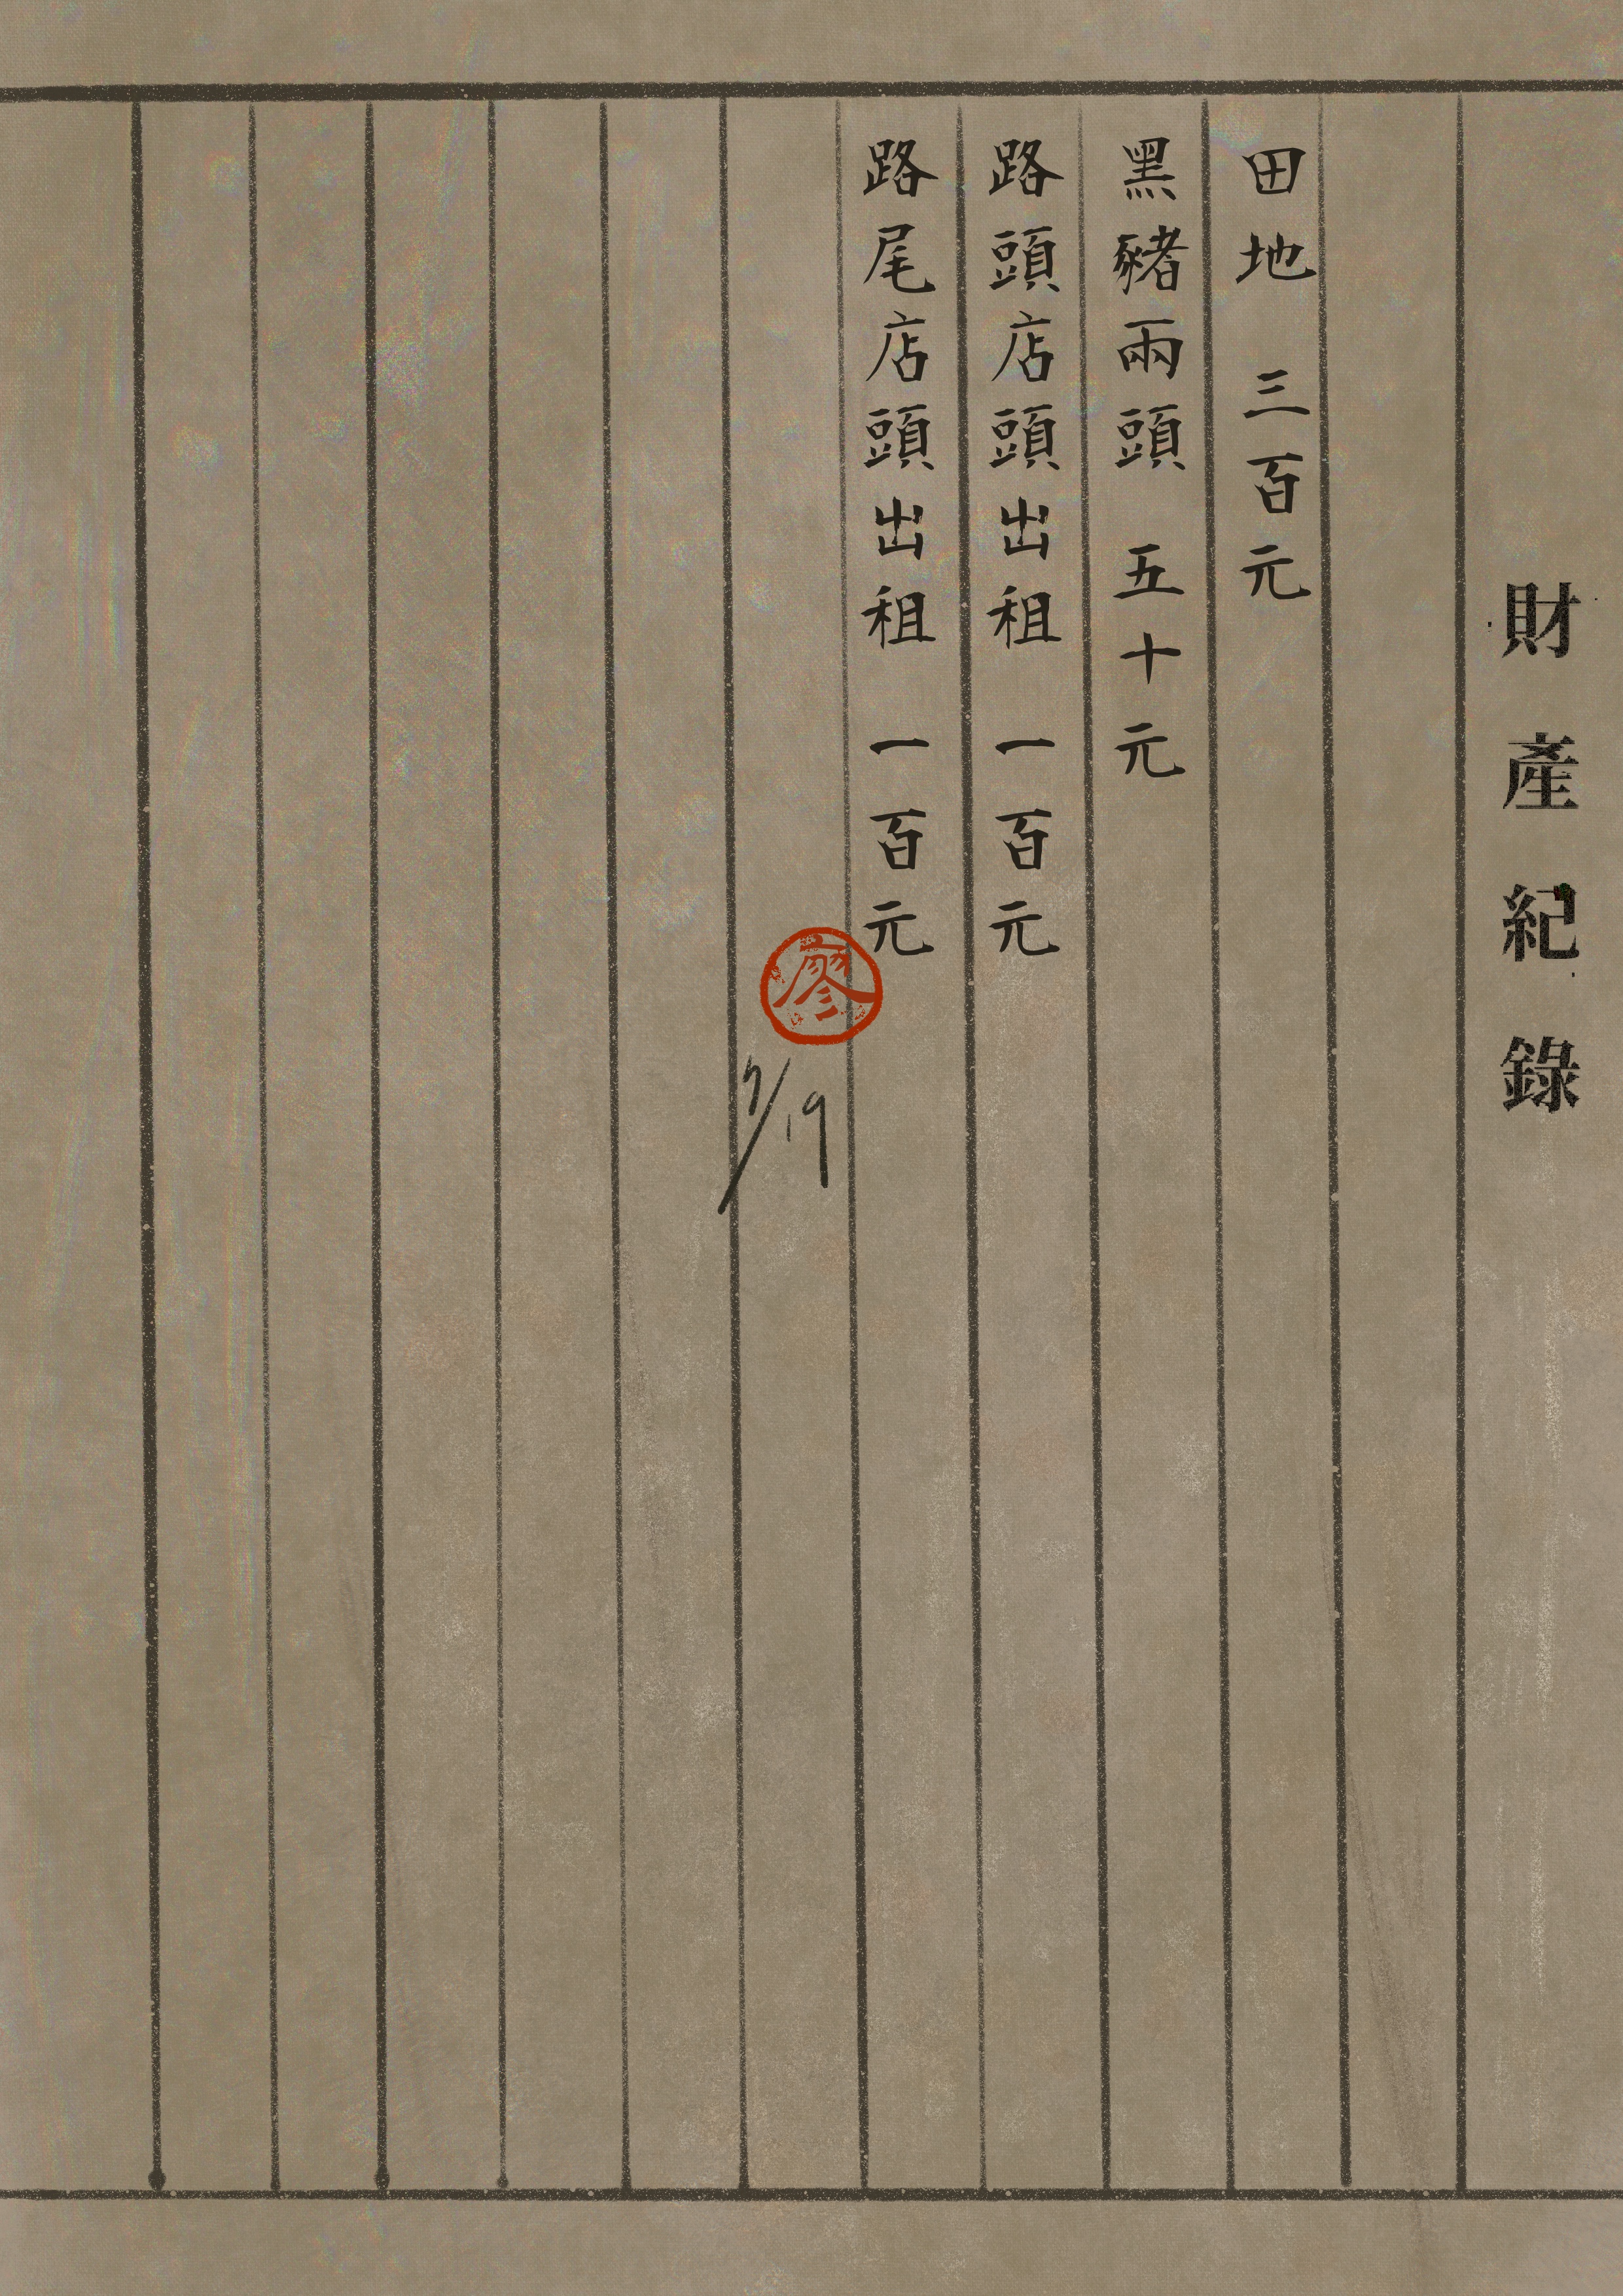 財產紀錄
田地 三百元
黑豬兩頭 五十元
路頭店頭出租 一百元
路尾店頭出租 一百元
廖
7/19